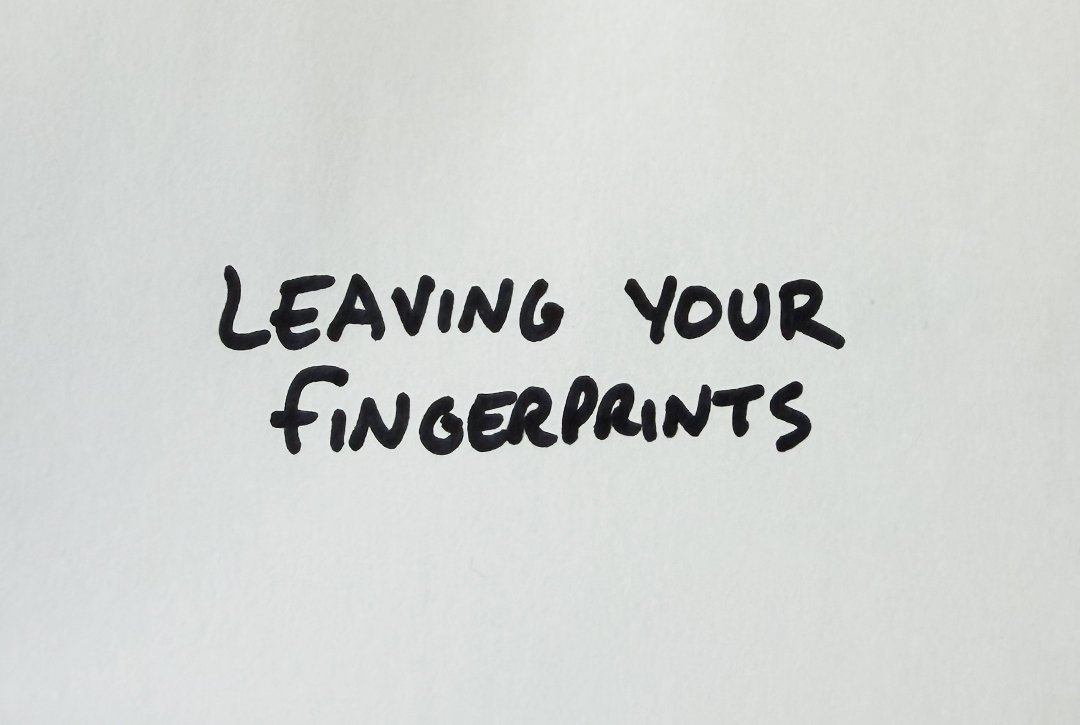 LEAVING YOUR
FINGERPRINTS